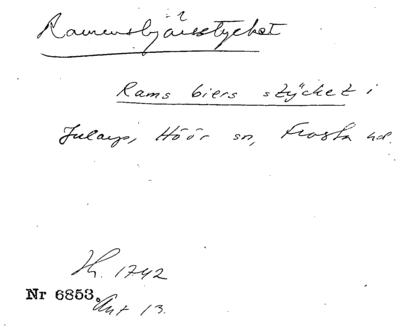 Ramensbjärsstycket
Rams biers stÿcket i
Jularp, Höör sn, Frosta hd.
Jh. 1742
Nr 6853. Akt 13.